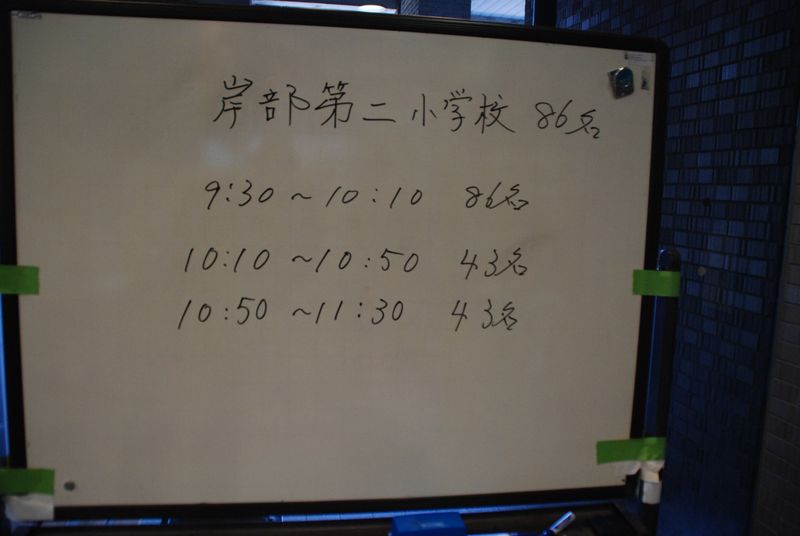 岸部第二小学校 86名
9:30 ~ 10:10 86名
10:10 ~10:50 43名
10:50 ~11:30 43名